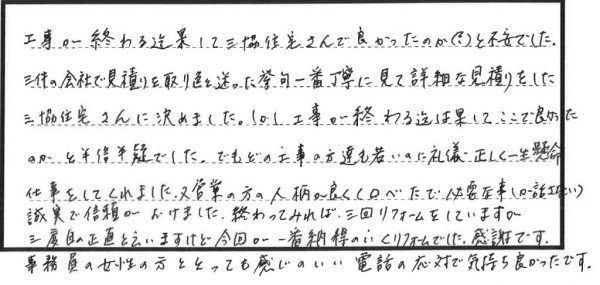 工事が終わる迄果して三協住宅さんで良かったのか(?)と不安でした。
三件の会社で見積りを取り色々迷った挙句一番丁寧に見て詳細な見積りをした
三協住宅さんに決めました。しかし工事が終わる迄は果してここで良かった
のかと半信半疑でした。でもどの工事の方達も若いのに礼儀正しく一生懸命
仕事をしてくれました。又営業の方の人柄が良く(口べたで必要な事しか話さない)
誠実で信頼がおけました。終わってみれば三回リフォームをしていますが
三度目の正直と云いますけど今回が一番納得のいくリフォームでした。感謝です。
事務員の女性の方とっても感じのいい電話の応対で気持ち良かったです。